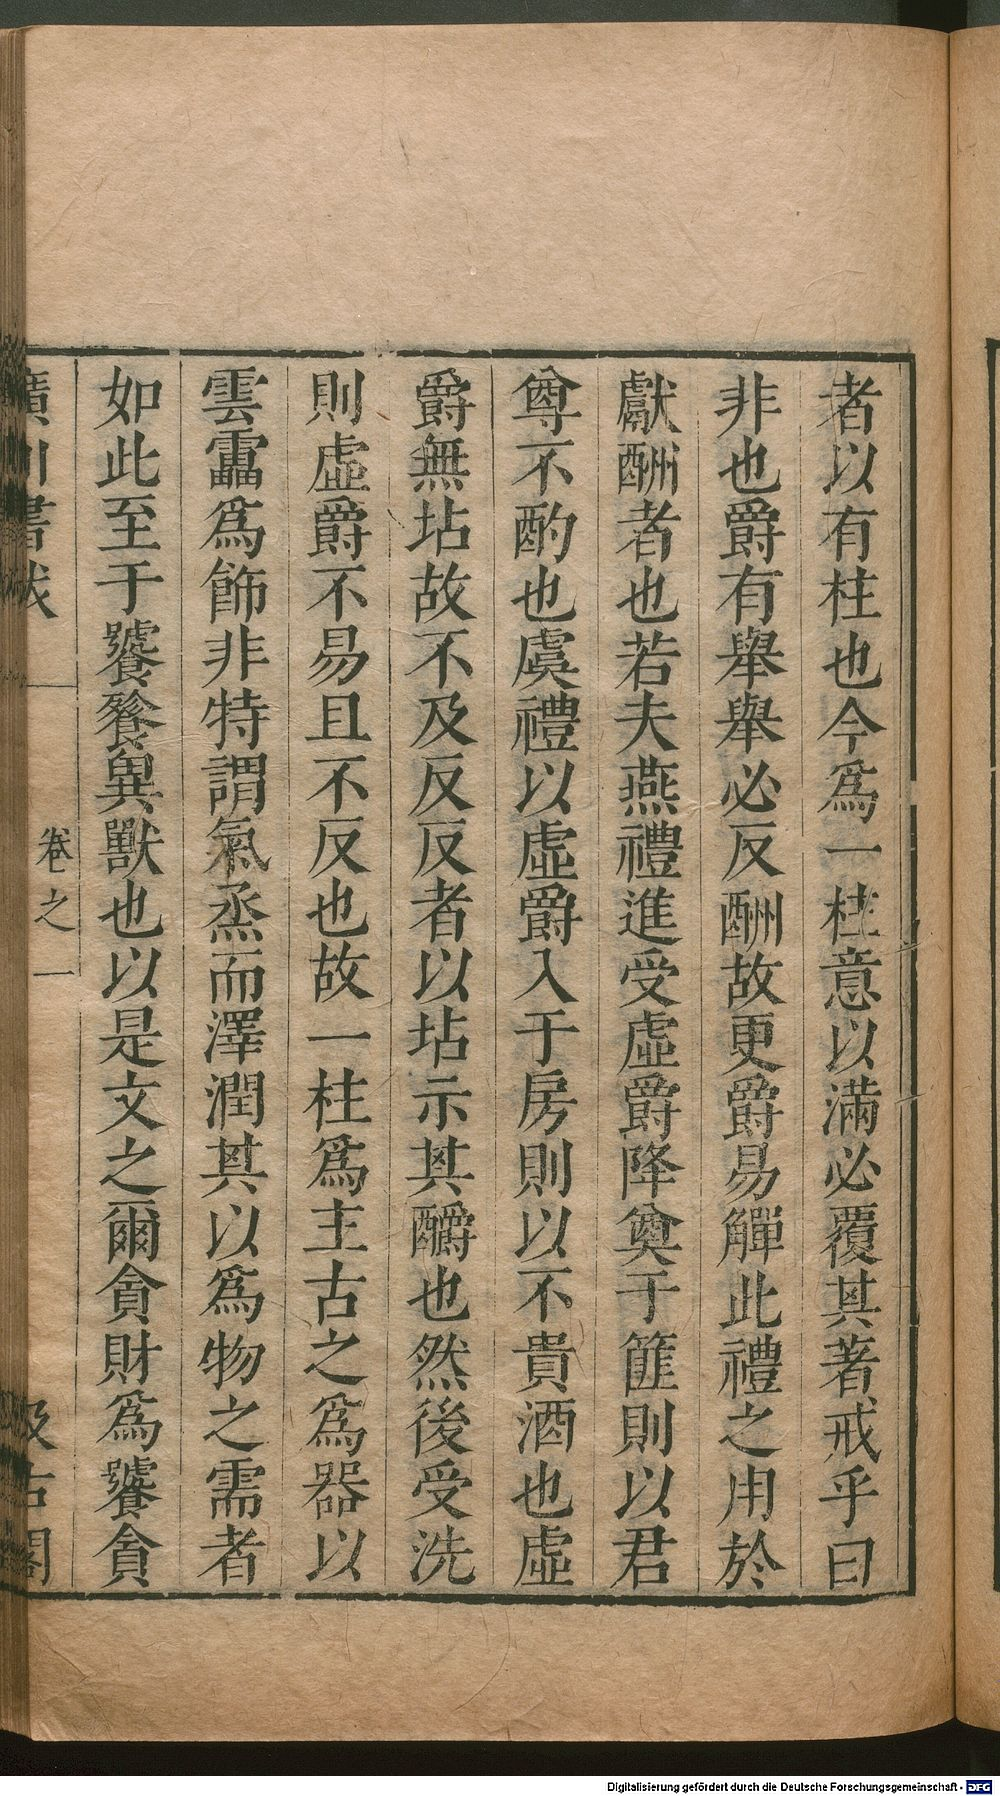 者以有柱也今爲一柱意以滿必覆其著戒乎曰
非也爵有舉舉必反酬故更爵易觶此禮之用於
獻酬者也若夫燕禮進受虛爵降奠于篚則以君
尊不酌也虞禮以虛爵入于房則以不貴酒也虛
爵無坫故不及反反者以坫示其釂也然後受洗
則虛爵不易且不反也故一柱爲主古之爲器以
雲靁爲飾非特謂氣烝而澤潤其以爲物之需者
如此至于饕餮異獸也以是文之爾貪財爲饕貪
廣川書跋
卷之一
汲古閣
Digitalisierung gefördert durch die Deutsche Forschungsgemeinschaft - DFG